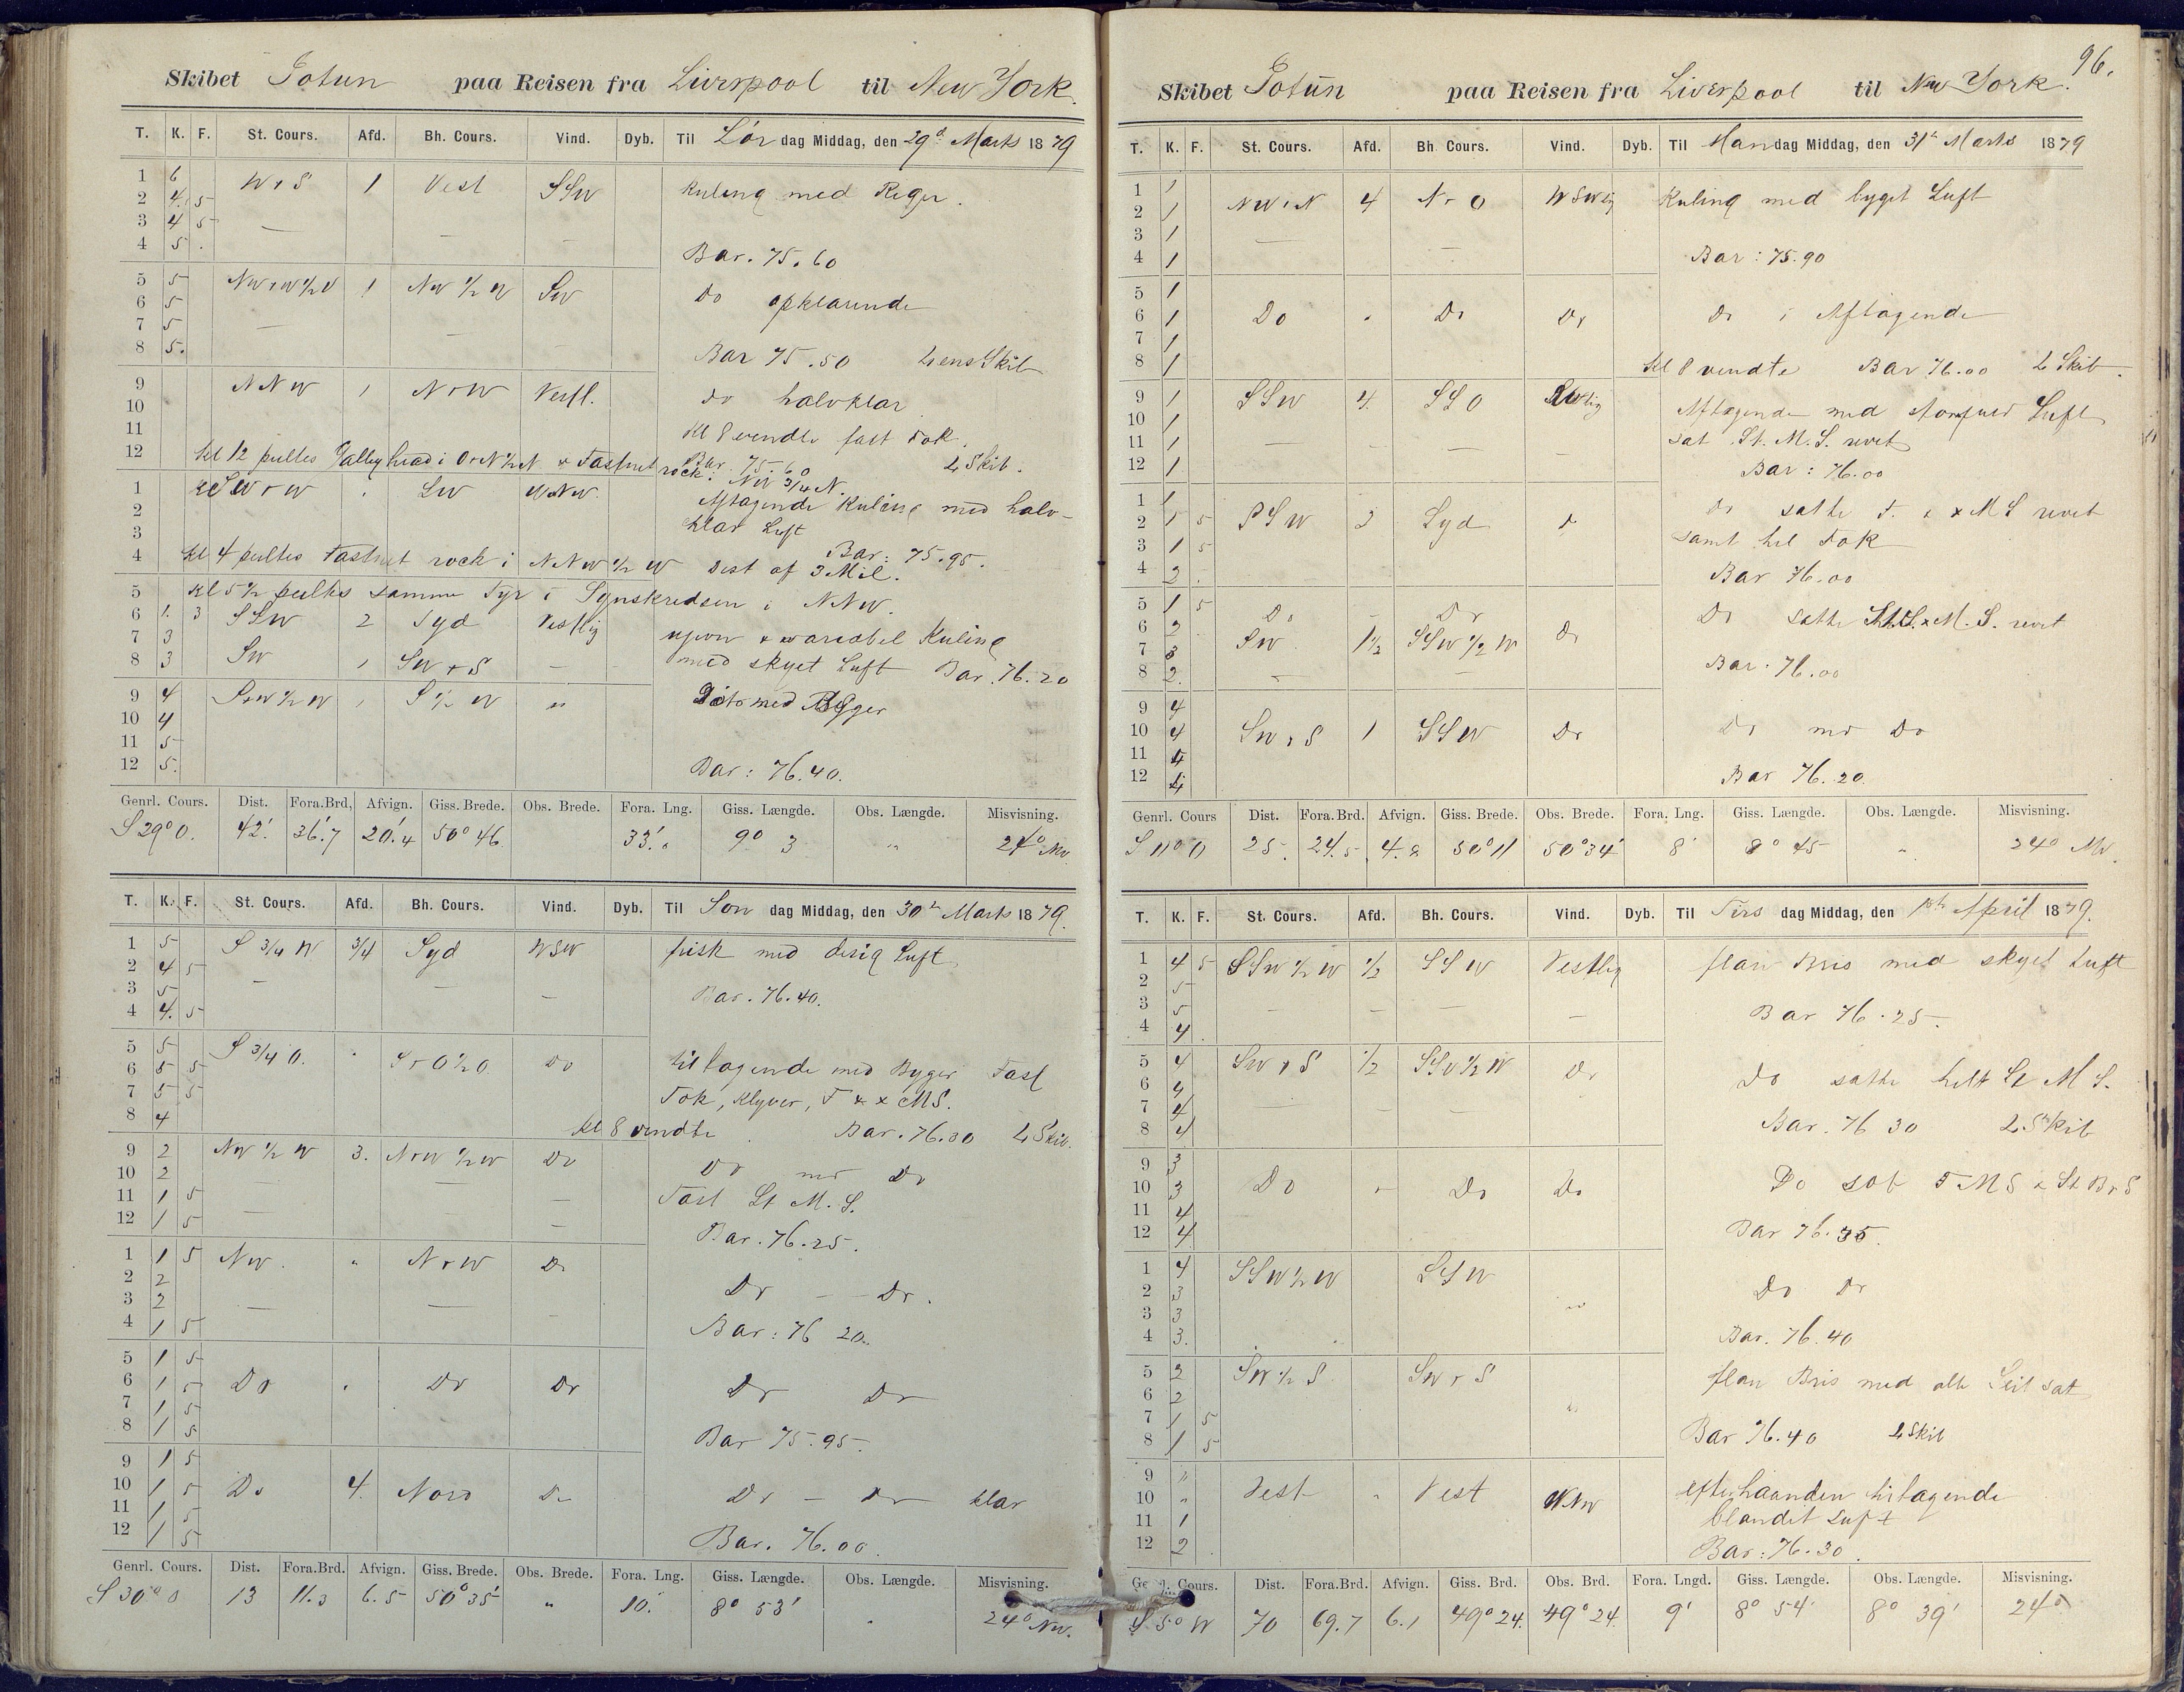 Skibet Jotun paa Reisen fra Liverpool til New York.
T. K. F. St. Cours. Afd. Bh. Cours. Vind. Dyb. Til Lør dag Middag, den 29d Marts 1879
1 6 WrS 1 Vest SSW Kuling med Regn.
2 4. 5
3 4 5 — — —
4 5 . Bar. 75.60
5 5 NWrW½W 1 NW½W SW do opklarende
6 5
7 5 — —
8 5. Bar 75.50 Lens Skib
9 NNW 1 NrW Vestl. do halvklar
10
11 Kl 8 vendte fast Fok.
12 Kl 12 peiltes Galley head i OrN½N & Fastnet rock. NW ¾ N. Bar. 75.60 L Skib.
1 SWrW . SW WNW. Aftagende Kuling med halv-
2 klar Luft
3 Bar: 75.95.
4 kl 4 peiltes Fastnet rock i NNW½W Dist af 3 Mil.
5 kl 5½ peiltes samme Fyr i Synskredsen i NNW.
6 1. 3 SSW 2 Syd Vestlig ujevn & variabel Kuling
7 3
8 3 SW 1 SWrS — med skyet Luft Bar. 76.20
9 4 SrW½W 1 S½W " Dito med Byger
10 4
11 5
12 5. Bar: 76.40.
Genrl. Cours. Dist. Fora.Brd. Afvign. Giss. Brede. Obs. Brede. Fora. Lng. Giss. Længde. Obs. Længde. Misvisning.
S 29° O. 42.' 36.'7 20.'4 50° 46 33.' 9° 3 " 24° NW.
T. K. F. St. Cours. Afd. Bh. Cours. Vind. Dyb. Til Søn dag Middag, den 30te Marts 1879.
1 5 S¾W ¾ Syd WSW frisk med disig Luft
2 4 5
3 5 — — — Bar. 76.40.
4 4. 5
5 5 S¾O. " SrO½O Do tiltagende med Byger Fast
6 5 5
7 5 5 Fok, Klyver, F & x MS.
8 4 kl 8 vendte. Bar. 76.30 L Skib.
9 2 NW½W 3. NrW½W Do Do md Do
10 2 — —
11 1 5 — Fast St M. S.
12 1 5 — — — Bar. 76.25.
1 1 5 NW. " NrW Do
2 2 Do — Do.
3 2 — — —
4 1 5 Bar: 76 20.
5 1 5
6 1 5 Do " Do Do Do Do
7 1 5
8 1 5 Bar 75.95.
9 1 5
10 1 5 Do 4. Nord Do Do — Do klar
11 1 5
12 1 5 Bar. 76.00.
Genrl. Cours. Dist. Fora.Brd. Afvign. Giss. Brede. Obs. Brede. Fora. Lng. Giss. Længde. Obs. Længde. Misvisning.
S 30° O 13 11.3 6.5 50° 35' " 10. 8° 53' . 24° NW.
96.
Skibet Jotun paa Reisen fra Liverpool til New York.
T. K. F. St. Cours. Afd. Bh. Cours. Vind. Dyb. Til Man dag Middag, den 31te Marts 1879
1 1
2 1 NWrN 4 NrO WSWlig Kuling med byget Luft
3 1 — —
4 1 Bar: 75.90
5 1
6 1 Do " Do Do Do i Aftagende
7 1
8 1 kl 8 vendte Bar 76.00 L Skib.
9 1 SSW 4. SSO SWlig Aftagende med Luft
10 1
11 1 — — — sat St. M. S. revet
12 1 Bar: 76.00
1 1 Do satte F. & x MS revet
2 1 5 SSW 3 Syd Do
3 1 5 samt hel Fok
4 2. Bar 76.00
5 1 5 Do — Do Do satte M. S. revet
6 2
7 3 SW 1½ SSW½W Do
8 2. — — Bar. 76.00
9 4
10 4 SWrS 1 SSW Do Do md Do
11 4
12 4 Bar 76.20
Genrl. Cours Dist. Fora.Brd. Afvign. Giss. Brede. Obs. Brede. Fora. Lng. Giss. Længde. Obs. Længde. Misvisning.
S 11° O 25. 24.5 4.8 50° 11 50° 34' 8' 8° 45 " 24° NW.
T. K. F. St. Cours. Afd. Bh. Cours. Vind. Dyb. Til Tirs dag Middag, den 1ste April 1879.
1 4 5 SSW½W ½ SSW Vestlig flau Bris med skyet Luft
2 5
3 5 — — — — Bar 76.25.
4 4
5 4 SWrS ½ SSW½W Do Do satte helt St M S.
6 4
7 4 — — —
8 4 Bar. 76 30 L Skib
9 3
10 3 Do " Do Do Do sat F MS & St Br S
11 4
12 4 Bar 76.35.
1 4 SSW½W SSW Do Do
2 3
3 3 "
4 3. Bar. 76.40
5 2 SW½S SWrS flau Bris med alle Seil sat
6 2
7 1 5 "
8 1 5 Bar 76.40 L Skib
9 "
10 " Vest " Vest WNW efterhaanden tiltagende
11 1 blandet Luft
12 2 Bar: 76.30.
Genrl. Cours. Dist. Fora.Brd. Afvign. Giss. Brd. Obs. Brd. Fora. Lngd. Giss. Længde. Obs. Længde. Misvisning.
S 5° W 70 69.7 6.1 49° 24. 49° 24. 9' 8° 54' 8° 39' 24°